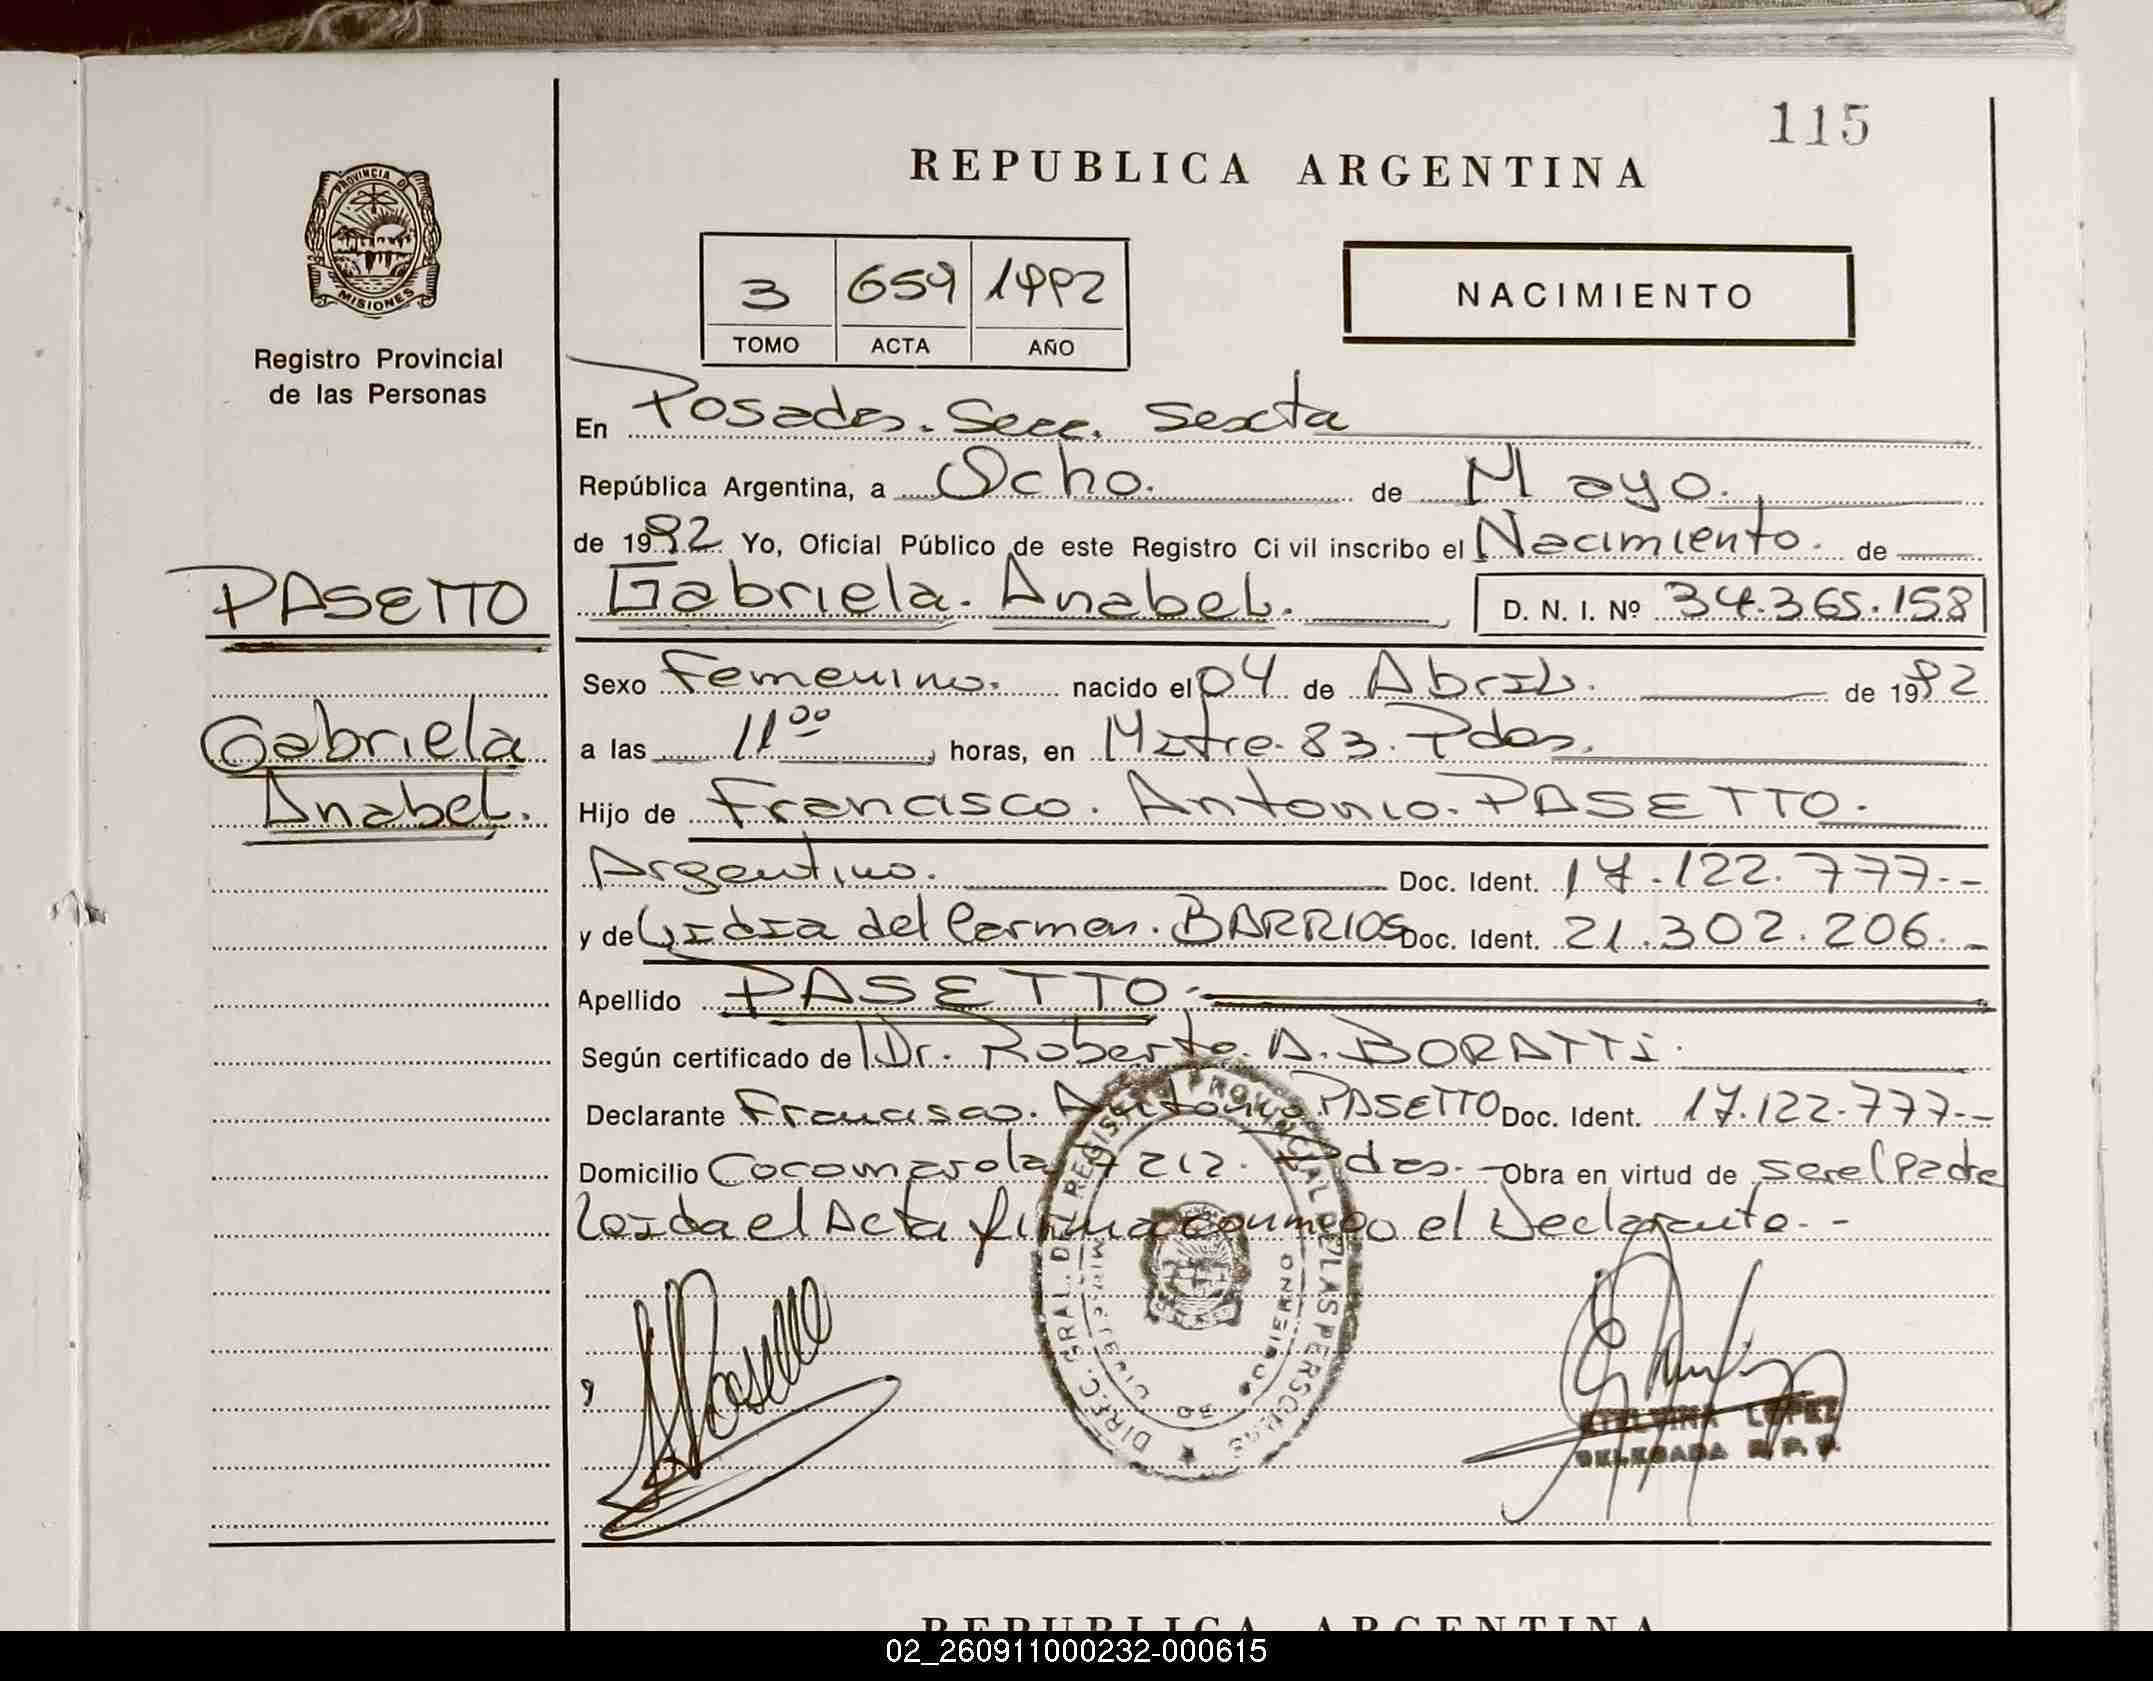 115
REPUBLICA ARGENTINA
PROVINCIA DE
MISIONES
Registro Provincial
de las Personas
3 659 1992
TOMO ACTA AÑO
NACIMIENTO
En Posadas. Secc. Sexta
República Argentina, a Ocho. de Mayo.
de 1992 Yo, Oficial Público de este Registro Civil inscribo el Nacimiento. de
PASETTO
Gabriela. Anabel. D. N. I. Nº 34.365.158
Sexo Femenino. nacido el 04 de Abril. de 1992
Gabriela
a las 11⁰⁰ horas, en Mitre. 83. Pdas.
Anabel.
Hijo de Francisco. Antonio. PASETTO.
Argentino. Doc. Ident. 17.122.777.-
y de Lidia del Carmen. BARRIOS Doc. Ident. 21.302.206.-
Apellido PASETTO.
Según certificado de Dr. Roberto. A. BORATTI.
Declarante Francisco. Antonio. PASETTO Doc. Ident. 17.122.777.-
Domicilio Cocomarola 7212. Pdas.- Obra en virtud de ser el Padre
Leida el Acta firma conmigo el Declarante.-
DIREC. GRAL. DEL REGISTRO PROVINCIAL DE LAS PERSONAS
MINISTERIO DE GOBIERNO
LOPEZ
DELEGADA R. P. P.
REPUBLICA ARGENTINA
02_260911000232-000615